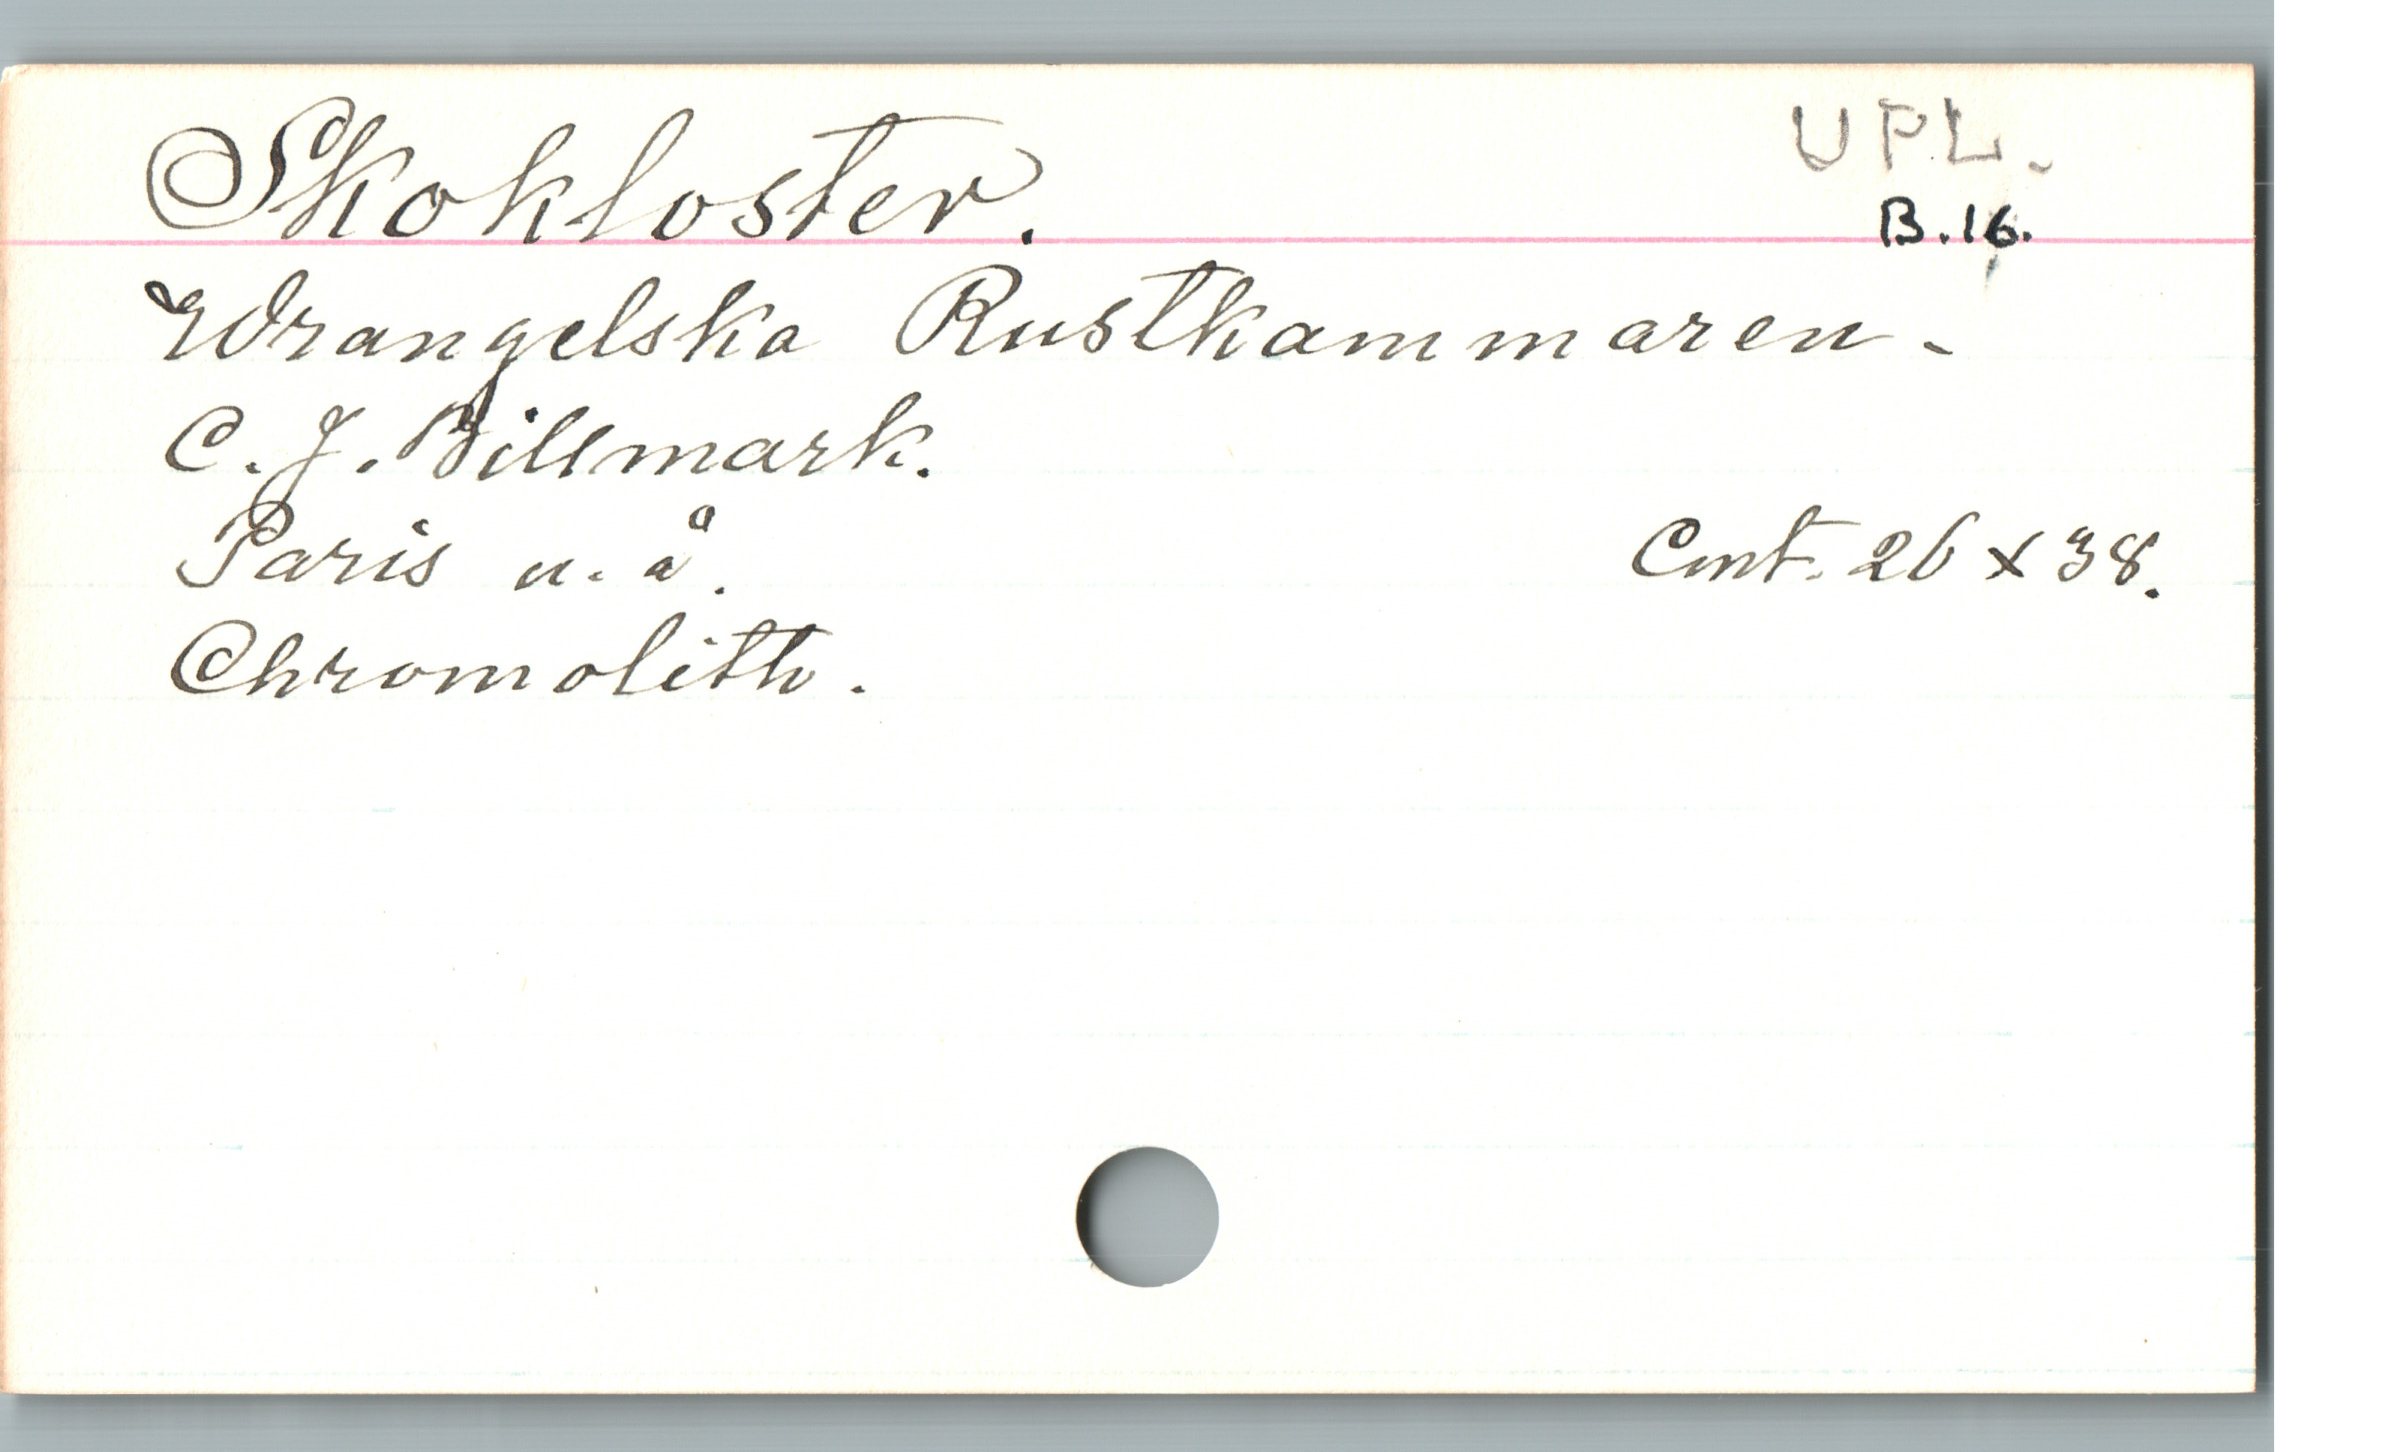 Skokloster.
UPL.
B.16.
Wrangelska Rustkammaren.
C. J. Billmark.
Paris u. å.
Cmt. 26 x 38.
Chromolith.